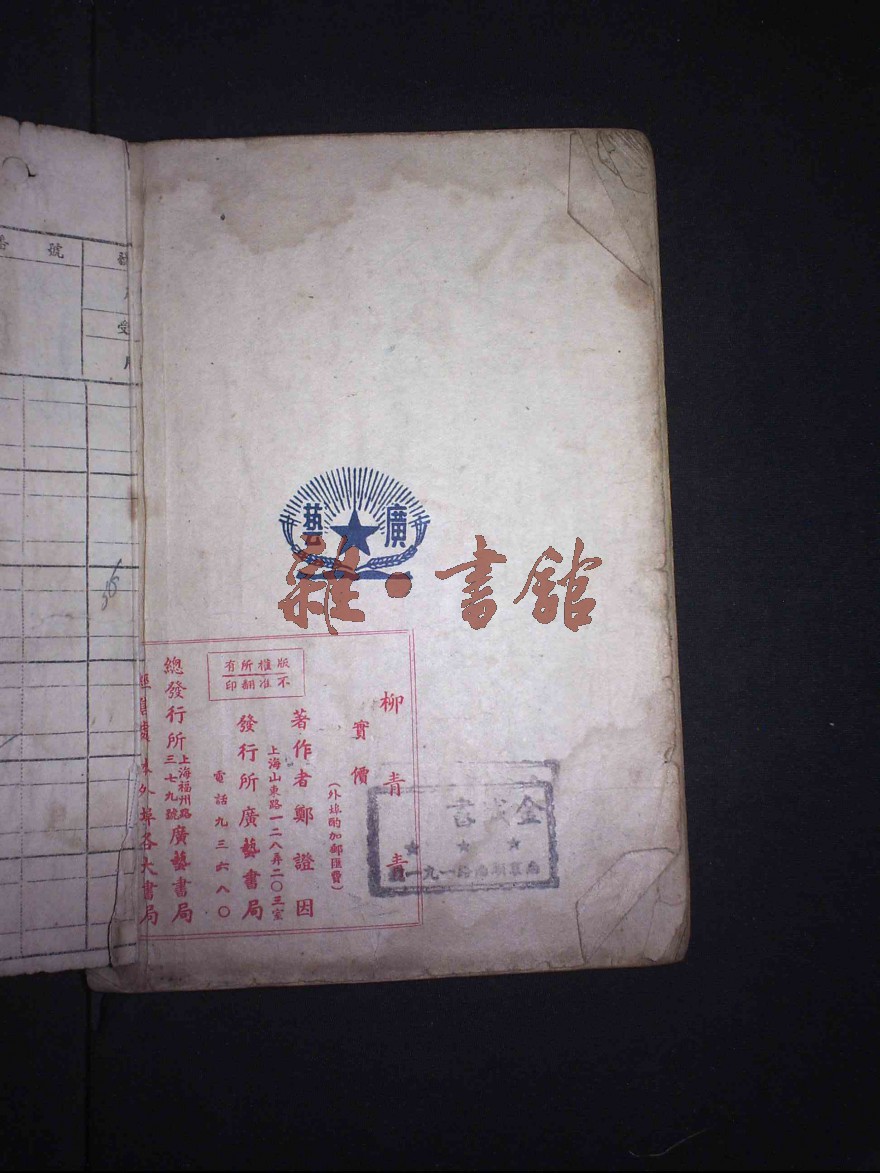 號
受
廣藝
雜·書館
版權所有
不准翻印
柳青青
實價
(外埠酌加郵匯費)
著作者鄭證因
上海山東路一二八弄二〇三室
發行所廣藝書局
電話九三六八〇
總發行所上海福州路三七九號廣藝書局
外埠各大書局
金
言